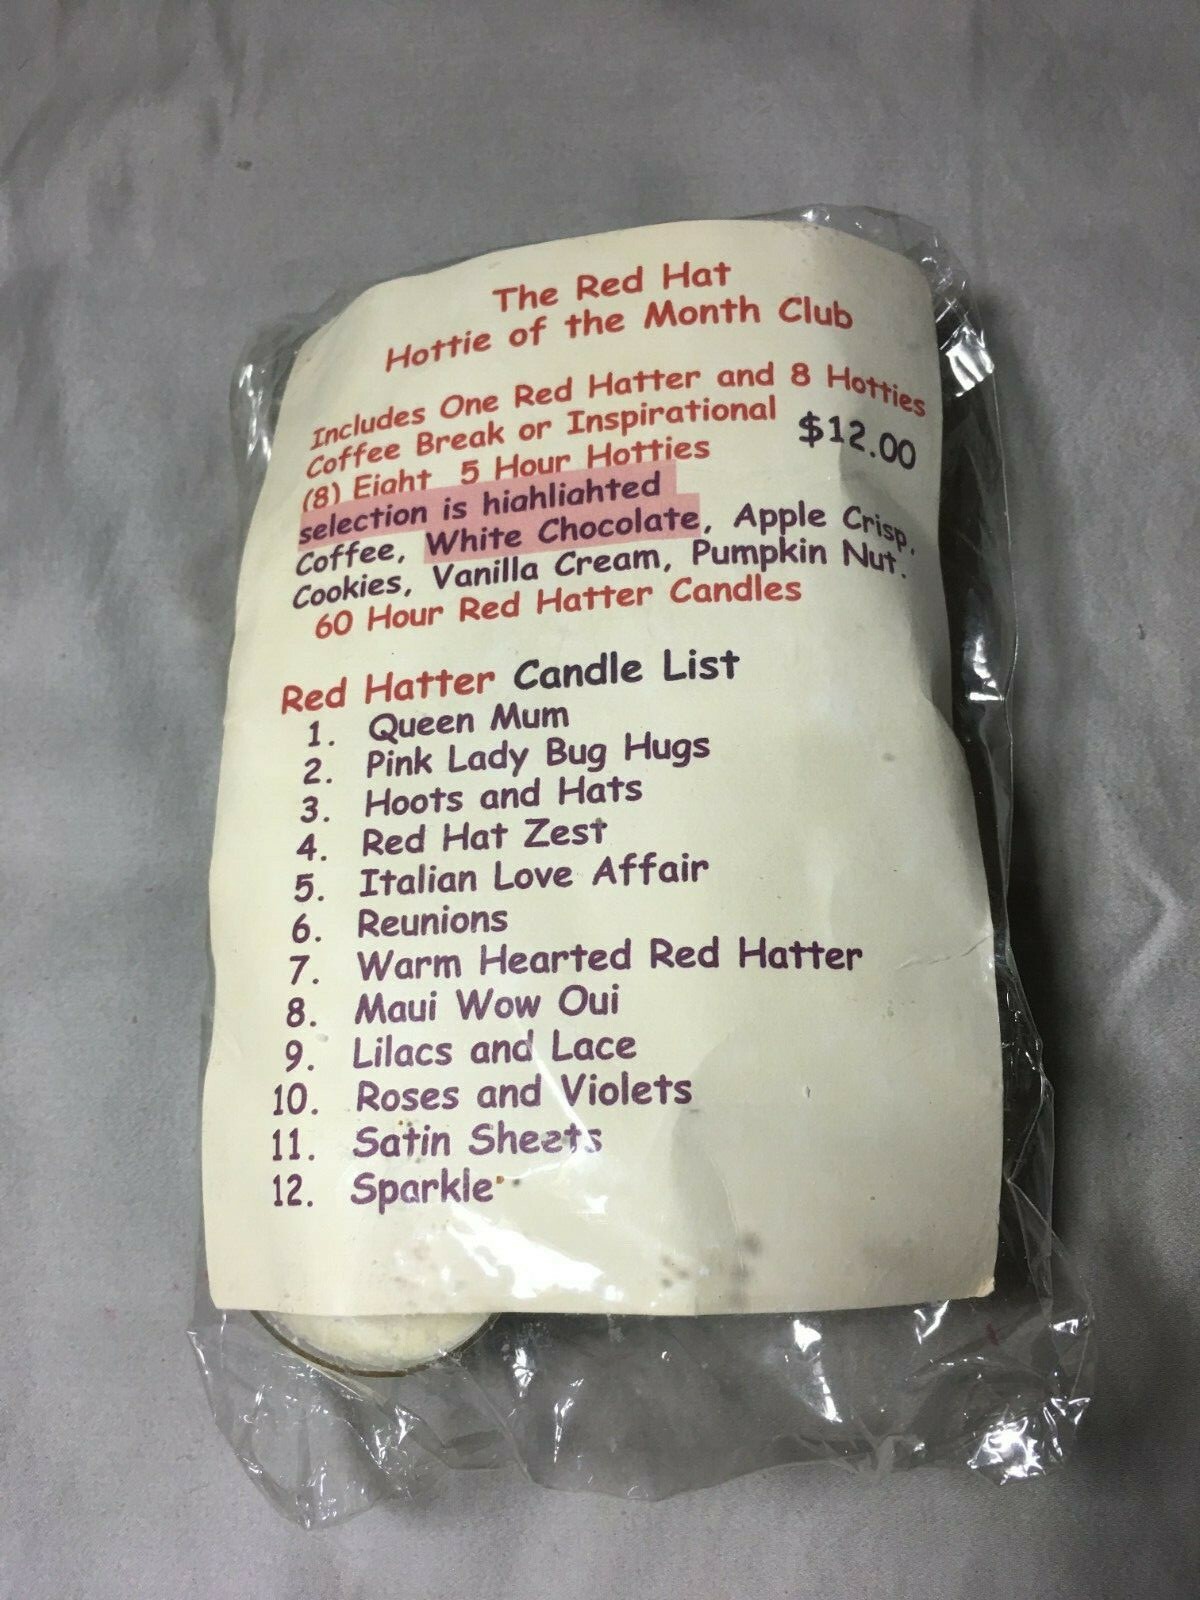 The Red Hat
Hottie of the Month Club
Includes One Red Hatter and 8 Hotties
Coffee Break or Inspirational $12.00
(8) Eight 5 Hour Hotties
selection is highlighted
Coffee, White Chocolate, Apple Crisp,
Cookies, Vanilla Cream, Pumpkin Nut.
60 Hour Red Hatter Candles
Red Hatter Candle List
1. Queen Mum
2. Pink Lady Bug Hugs
3. Hoots and Hats
4. Red Hat Zest
5. Italian Love Affair
6. Reunions
7. Warm Hearted Red Hatter
8. Maui Wow Oui
9. Lilacs and Lace
10. Roses and Violets
11. Satin Sheets
12. Sparkle